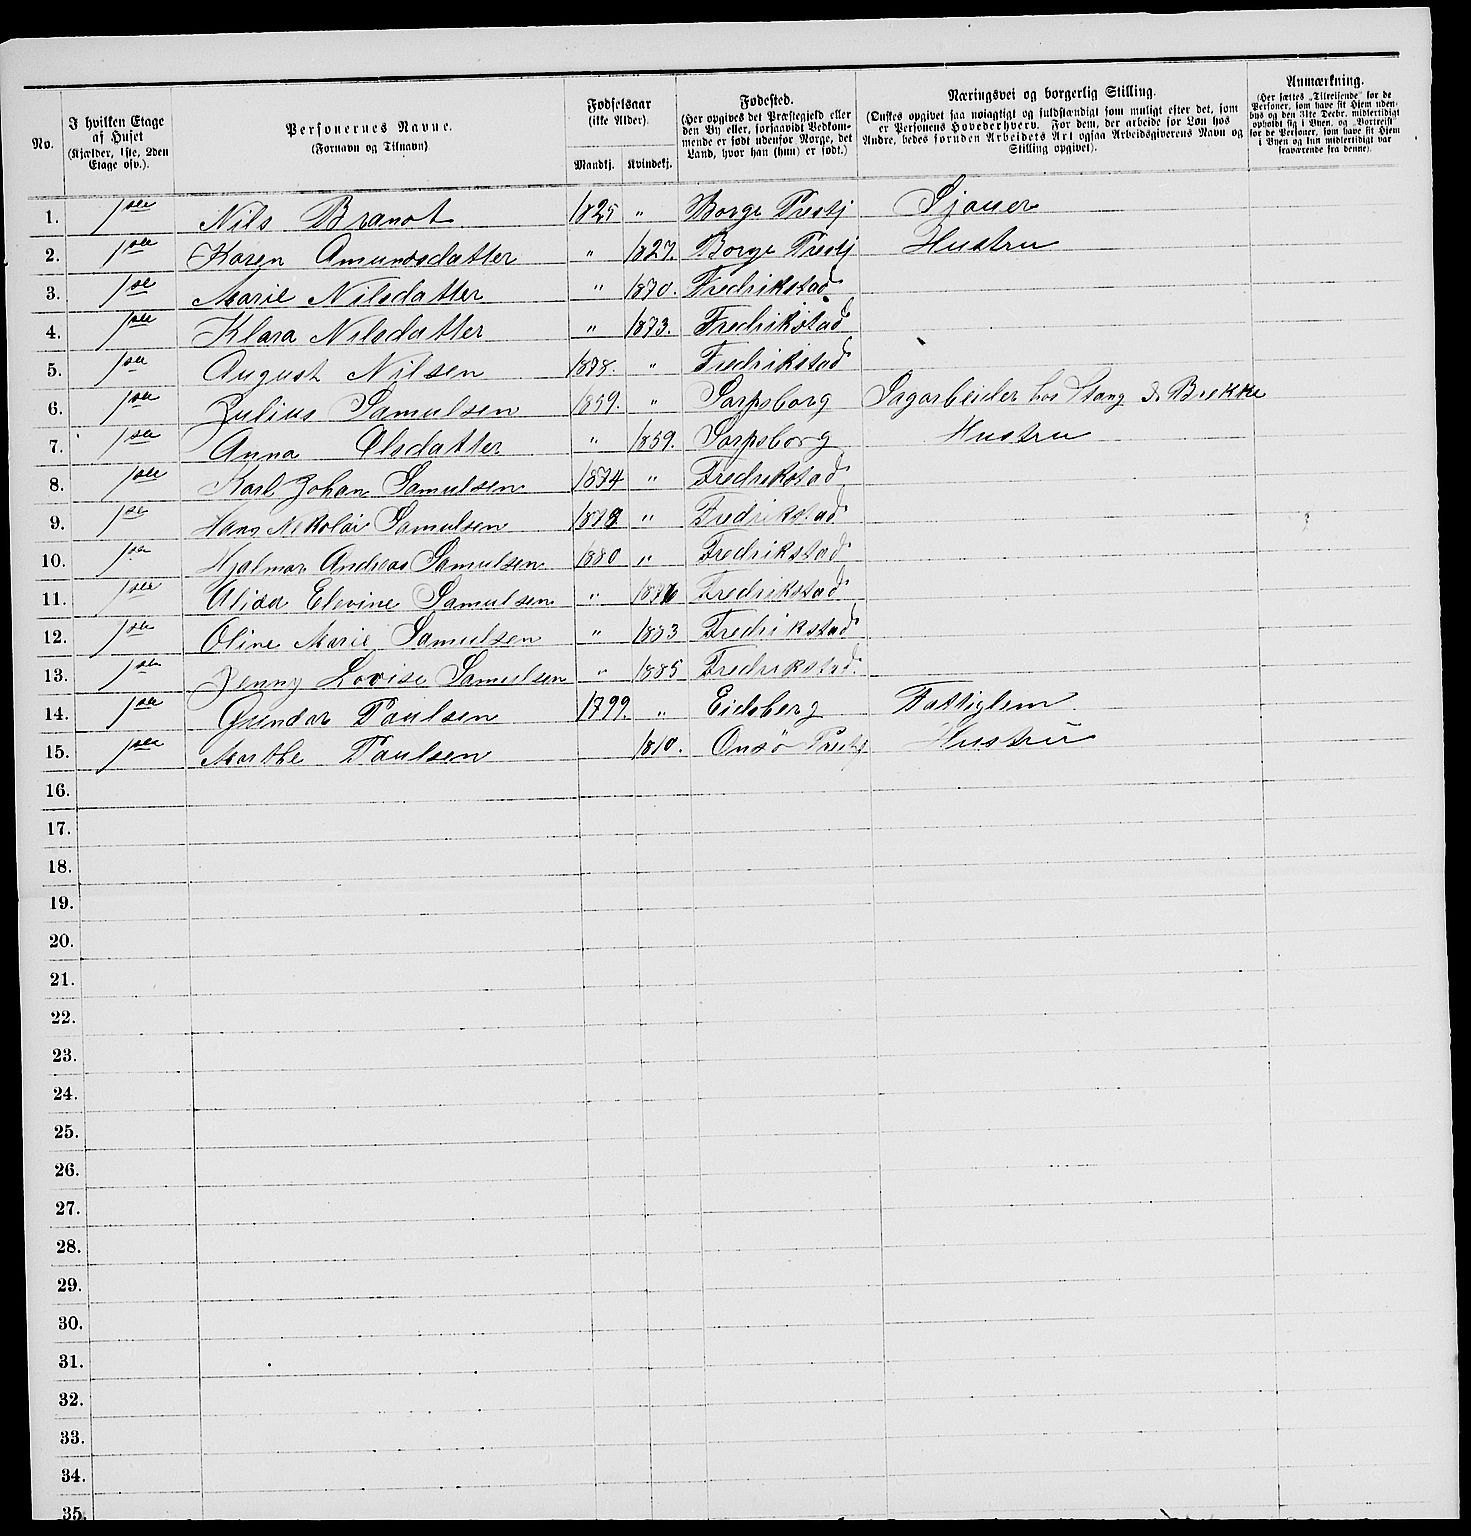 No.
I hvilken Etage af Huset
(Kjælder, 1ste, 2den Etage osv.).
Personernes Navne.
(Fornavn og Tilnavn)
Fødselsaar
(ikke Alder).
Mandkj. Kvindekj.
Fødested.
(Her opgives det Præstegjeld eller
den By eller, forsaavidt Vedkom-
mende er født udenfor Norge, det
Land, hvor han (hun) er født.)
Næringsvei og borgerlig Stilling.
(Ønskes opgivet saa nøiagtigt og fuldstændigt som muligt efter det, som
er Personens Hovederhverv. For dem, der arbeide for Løn hos
Andre, bedes foruden Arbeidets Art ogsaa Arbeidsgiverens Navn og
Stilling opgivet).
Anmærkning.
(Her sættes „Tilreisende" for de
Personer, som have sit Hjem uden-
bys og den 31te Decbr. midlertidigt
opholdt sig i Byen, og „Bortreist"
for de Personer, som have sit Hjem
i Byen og kun midlertidigt var
fraværende fra denne).
1. 1ste Nils Brandt 1825 " Borge Prestj Sjauer
2. 1ste Karen Amundsdatter " 1827. Borge Prestj Hustru
3. 1ste Marie Nilsdatter " 1870. Fredrikstad
4. 1ste Klara Nilsdatter " 1873. Fredrikstad
5. 1ste August Nilsen 1878. " Fredrikstad
6. 1ste Julius Samulsen 1859. " Sarpsborg Sagarbeider hos Stang & Brekke
7. 1ste Anna Olsdatter " 1859. Sarpsborg Hustru
8. 1ste Karl Johan Samulsen 1874 " Fredrikstad
9. 1ste Hans Nikolai Samulsen 1878 " Fredrikstad
10. 1ste Hjalmar Andreas Samulsen 1880 " Fredrikstad
11. 1ste Alida Elevine Samulsen " Fredrikstad
12. 1ste Oline Marie Samulsen " 1883 Fredrikstad
13. 1ste Jenny Lovise Samulsen " 1885 Fredrikstad.
14. 1ste Gundar Paulsen 1799. " Eidsberg Fattiglem
15. 1ste Marthe Paulsen 1810. Onsø Prestj Hustru
16.
17.
18.
19.
20.
21.
22.
23.
24.
25.
26.
27.
28.
29.
30.
31.
32.
33.
34.
35.